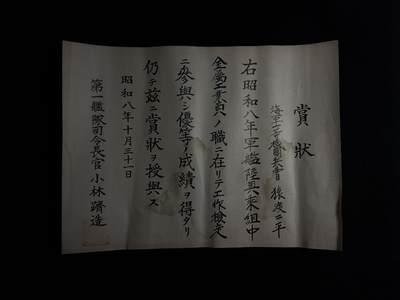 賞狀
海軍一等機關兵曹
右昭和八年軍艦陸奥乗組中
金屬工業員ノ職ニ在リテ工作檢定
ニ參與シ優等ノ成績ヲ得タリ
仍テ茲ニ賞狀ヲ授與ス
昭和八年十月三十一日
第一艦隊司令長官小林躋造